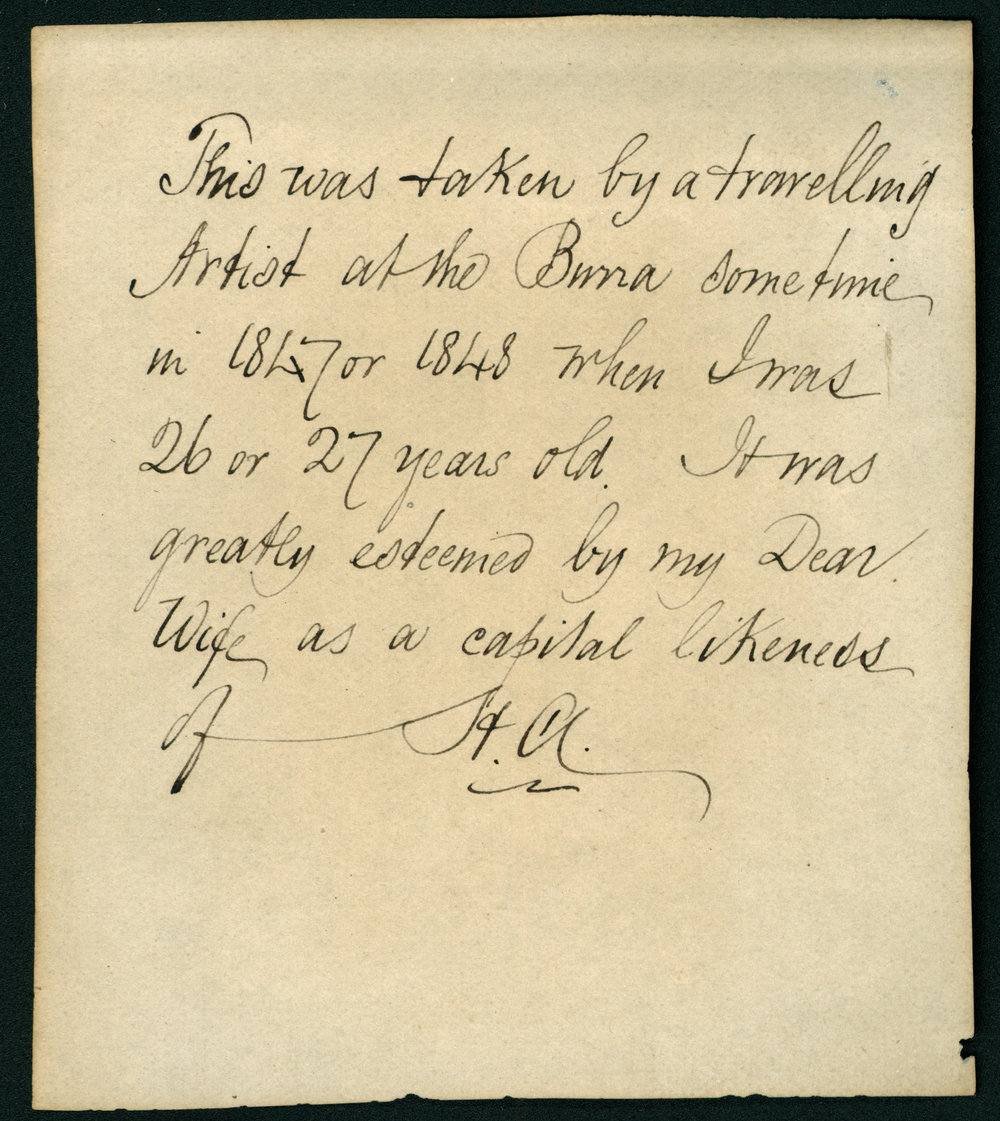 This was taken by a travelling
Artist at the Burra sometime
in 1847 or 1848 when I was
26 or 27 years old. It was
greatly esteemed by my Dear
Wife as a capital likeness
of H. A.